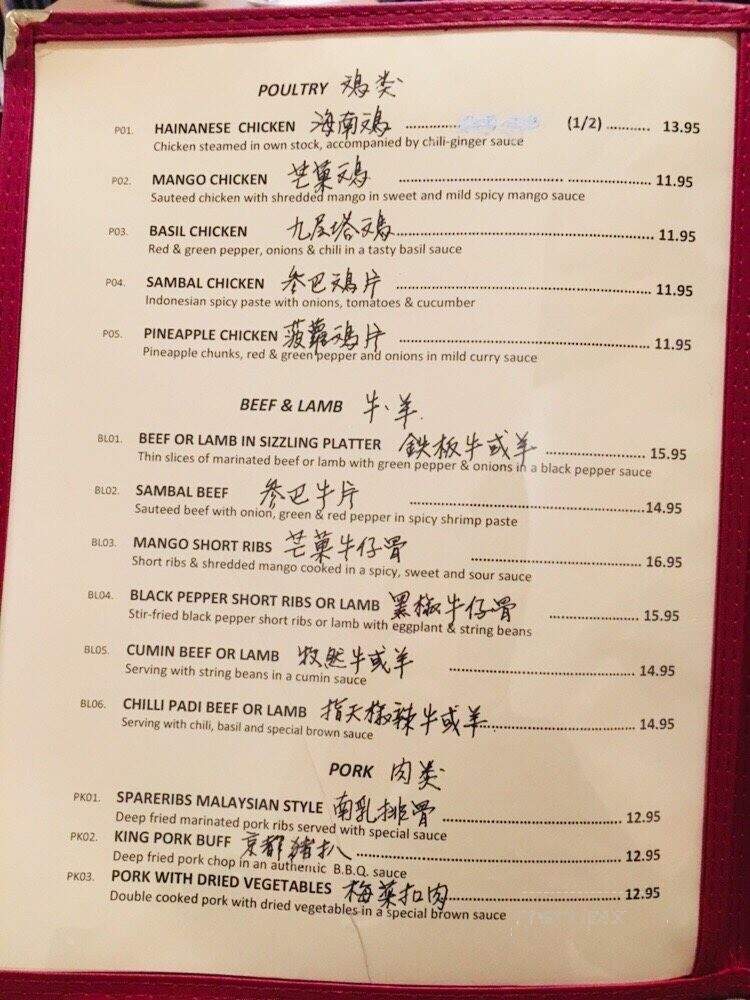 POULTRY 鸡类
P01. HAINANESE CHICKEN 海南鸡 .......... (1/2) .......... 13.95
Chicken steamed in own stock, accompanied by chili-ginger sauce
P02. MANGO CHICKEN 芒菓鸡 .......... 11.95
Sauteed chicken with shredded mango in sweet and mild spicy mango sauce
P03. BASIL CHICKEN 九层塔鸡 .......... 11.95
Red & green pepper, onions & chili in a tasty basil sauce
P04. SAMBAL CHICKEN 参巴鸡片 .......... 11.95
Indonesian spicy paste with onions, tomatoes & cucumber
P05. PINEAPPLE CHICKEN 菠蘿鸡片 .......... 11.95
Pineapple chunks, red & green pepper and onions in mild curry sauce
BEEF & LAMB 牛、羊
BL01. BEEF OR LAMB IN SIZZLING PLATTER 鉄板牛或羊 .......... 15.95
Thin slices of marinated beef or lamb with green pepper & onions in a black pepper sauce
BL02. SAMBAL BEEF 参巴牛片 .......... 14.95
Sauteed beef with onion, green & red pepper in spicy shrimp paste
BL03. MANGO SHORT RIBS 芒菓牛仔骨 .......... 16.95
Short ribs & shredded mango cooked in a spicy, sweet and sour sauce
BL04. BLACK PEPPER SHORT RIBS OR LAMB 黑椒牛仔骨 .......... 15.95
Stir-fried black pepper short ribs or lamb with eggplant & string beans
BL05. CUMIN BEEF OR LAMB 牛或羊 .......... 14.95
Serving with string beans in a cumin sauce
BL06. CHILLI PADI BEEF OR LAMB 指天椒辣牛或羊 .......... 14.95
Serving with chili, basil and special brown sauce
PORK 肉类
PK01. SPARERIBS MALAYSIAN STYLE 南乳排骨 .......... 12.95
Deep fried marinated pork ribs served with special sauce
PK02. KING PORK BUFF 京都豬扒 .......... 12.95
Deep fried pork chop in an authentic B.B.Q. sauce
PK03. PORK WITH DRIED VEGETABLES 梅菜扣肉 .......... 12.95
Double cooked pork with dried vegetables in a special brown sauce